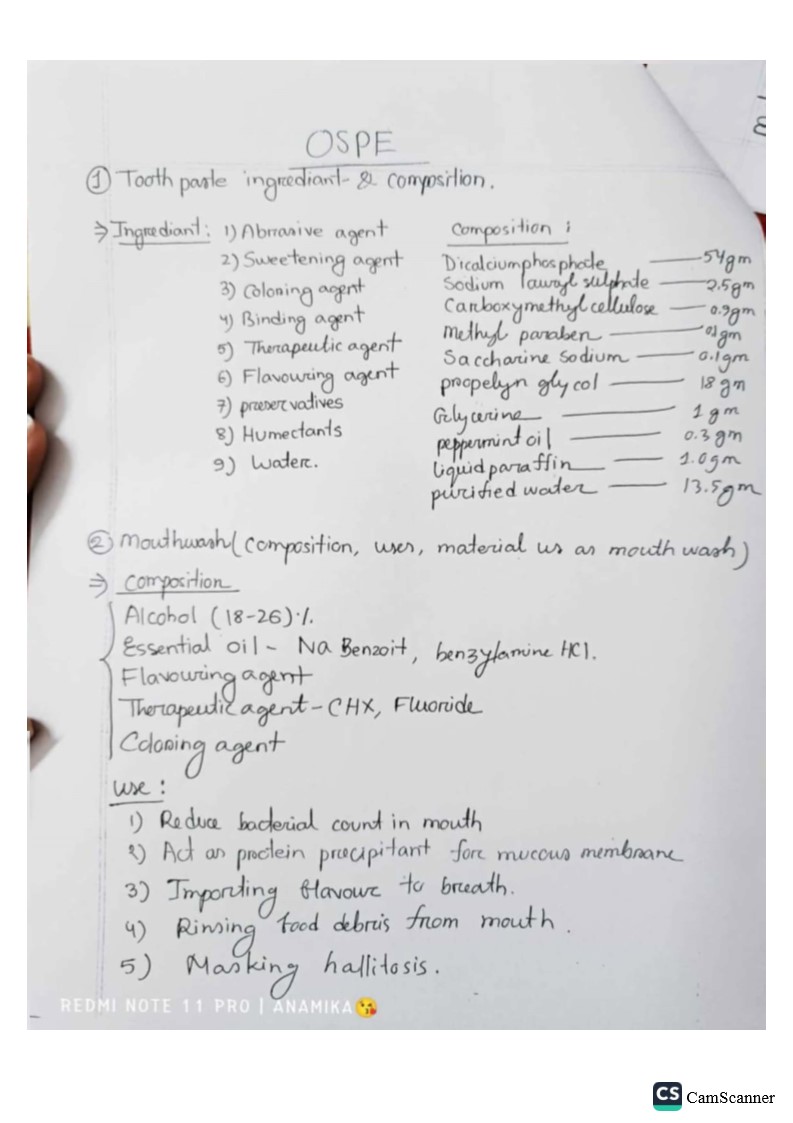 OSPE
① Tooth paste ingrediant & composition.
⇒ Ingrediant: 1) Abrrasive agent
2) Sweetening agent
3) Coloring agent
4) Binding agent
5) Therapeutic agent
6) Flavouring agent
7) preservatives
8) Humectants
9) Water.
Composition :
Dicalciumphosphate — 54gm
Sodium lauryl sulphate — 2.5gm
Carboxymethyl cellulose — 0.9gm
Methyl paraben — 0.1gm
Saccharine sodium — 0.1gm
propelyn glycol — 18 gm
Glycerine — 1 gm
peppermint oil — 0.3 gm
liquid paraffin — 1.0gm
purified water — 13.5gm
② Mouthwash (composition, uses, material us as mouth wash)
⇒ Composition
Alcohol (18-26)%.
Essential oil - Na Benzoit, benzylamine HCl.
Flavouring agent
Therapeutic agent - CHX, Fluoride
Coloring agent
Use :
1) Reduce bacterial count in mouth
2) Act as protein precipitant for mucous membrane
3) Imparting flavour to breath.
4) Rinsing food debris from mouth.
5) Masking hallitosis.
REDMI NOTE 11 PRO | ANAMIKA😘
CS CamScanner